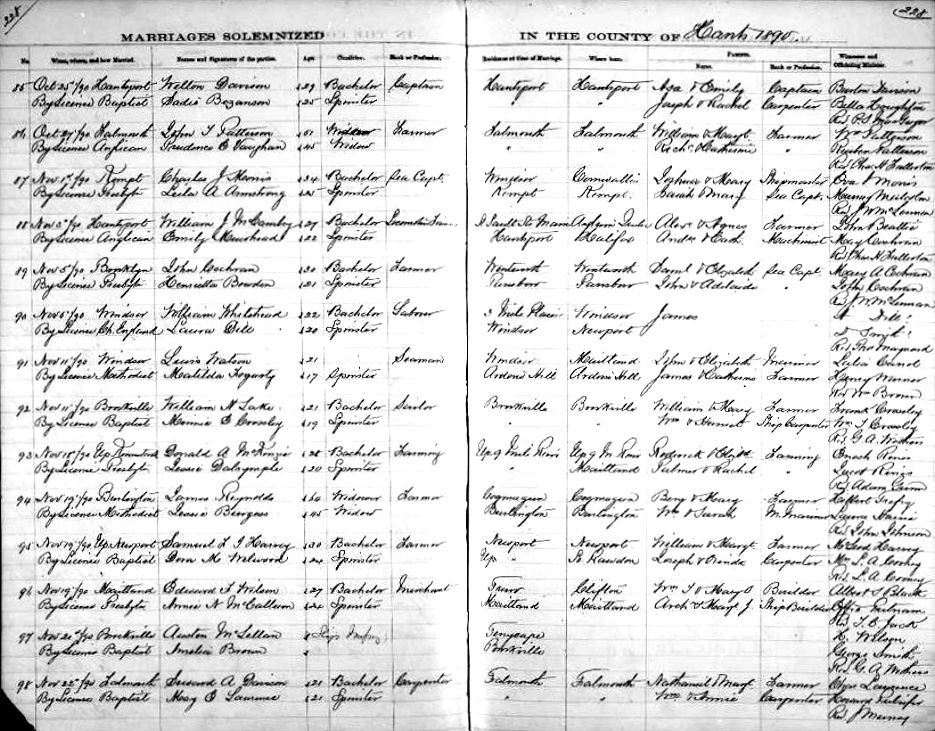 228
228
MARRIAGES SOLEMNIZED IN THE COUNTY OF Hants 1890.
No. When, where, and how Married. Names and Signatures of the parties. Age Condition. Rank or Profession. Residence at time of Marriage. Where born. PARENTS. Name. Rank or Profession. Witnesses and Officiating Minister.
85 Oct 25/90 Hantsport Welton Davison 29 Bachelor Captain Hantsport Hantsport Asa & Emily Captain Burton Davison
By License Baptist Sadie Bezanson 25 Spinster " " Joseph & Rachel Carpenter Bella Houghton
86 Oct 27/90 Falmouth John T Patterson 51 Widower Farmer Falmouth Falmouth William & Margt Farmer Wm Patterson
By License Anglican Prudence E Vaughan 45 Widow " " Richd Catherine " Reuben Patterson
Rd Chas H Fullerton
87 Nov 1st/90 Kempt Charles J Morris 34 Bachelor Sea Capt Windsor Cornwallis Joshua & Mary Shipmaster Eva Morris
By License Presbyt Leila A Armstrong 25 Spinster Kempt Kempt Sarah & Mary Sea Capt.
Rd J W McLennan
88 Nov 5/90 Hantsport William J 27 Bachelor Alex & Agnes Farmer John Beattie
By License Anglican Emily Muirhead 22 Spinster Hantsport Halifax Andw & Cath. Merchant Mary Cochran
Rd Chas H Fullerton
89 Nov 5/90 Brooklyn John Cochran 30 Bachelor Farmer Wentworth Wentworth Danl & Elizabth Sea Capt Mary A Cochran
By License Presbyt Henrietta Bowden 21 Spinster John & Adelaide " John Cochran
Rd J W McLennan
90 Nov 6/90 Windsor William Whitehead 22 Bachelor Labour 3 Mile Plains Windsor James Dill
By License Ch. England Laura Dill 20 Spinster Windsor Newport Smith
Rd Maynard
91 Nov 11/90 Windsor Lewis Watson 21 Seaman Windsor Maitland John & Elizabth Mariner
By License Methodist Matilda Fogarty 17 Spinster Ardoise Hill Ardoise Hill James & Catherine Farmer Henry
Rd Wm Brown
92 Nov 11/90 Brookville William N Lake 21 Bachelor Sailor Brookville Brookville William & Mary Farmer Frank Crossley
By License Baptist Minnie E Crossley 19 Spinster " " Wm & Ship Carpenter Wm T Crossley
Rd G. A. Weathers
93 Nov 15/90 Donald A McKenzie 28 Bachelor Farming Up 9 Mile River Up 9 M River Roderick & Elizbth Farming Enoch
By License Presbyt Lessie Dalrymple 20 Spinster " Maitland Palmer & Rachel " Jacob
Rd Adam Gunn
94 Nov 19/90 Burlington James Reynolds 64 Widower Farmer Cogmagun Cogmagun Benj & Mary Farmer
By License Methodist Lessie Burgess 45 Widow Burlington Burlington Wm & Sarah M. Mariner
Rd John Johnson
95 Nov 19/90 Up Newport Samuel L J Harvey 30 Bachelor Farmer Newport Newport William & Margt Farmer McLeod Harvey
By License Baptist Dora M Welwood 24 Spinster Up " So. Rawdon Joseph & Carpenter Mrs L. A. Cooney
Rd L. A. Cooney
96 Nov 19/90 Maitland Edward F Wilson 27 Bachelor Merchant Truro Clifton Wm T & Margt Builder Albert S Black
By License Presbyt Annie N McCallum 24 Spinster Maitland Maitland Arch & Margt J. Ship Builder Effie Putnam
Rd T. C. Jack
97 Nov 20/90 Brookville Austen McLellan Tenycape H. Wilson
By License Baptist Amelia Brown " Brookville George Smith
Rd G. A. Weathers
98 Nov 22/90 Falmouth Edward A Davison 21 Bachelor Carpenter Falmouth Falmouth Nathaniel & Margt Farmer Lawrence
By License Baptist May E Lawrence 21 Spinster " " Wm & Annie Carpenter
Rd J Murray